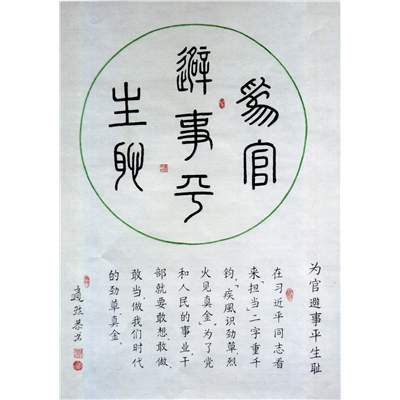 為官
避事平
生恥
为官避事平生耻
在习近平同志看
来“担当”二字重千
钧，“疾风识劲草，烈
火见真金。”为了党
和人民的事业干
部就要敢想、敢做、
敢当，做我们时代
的劲草真金。